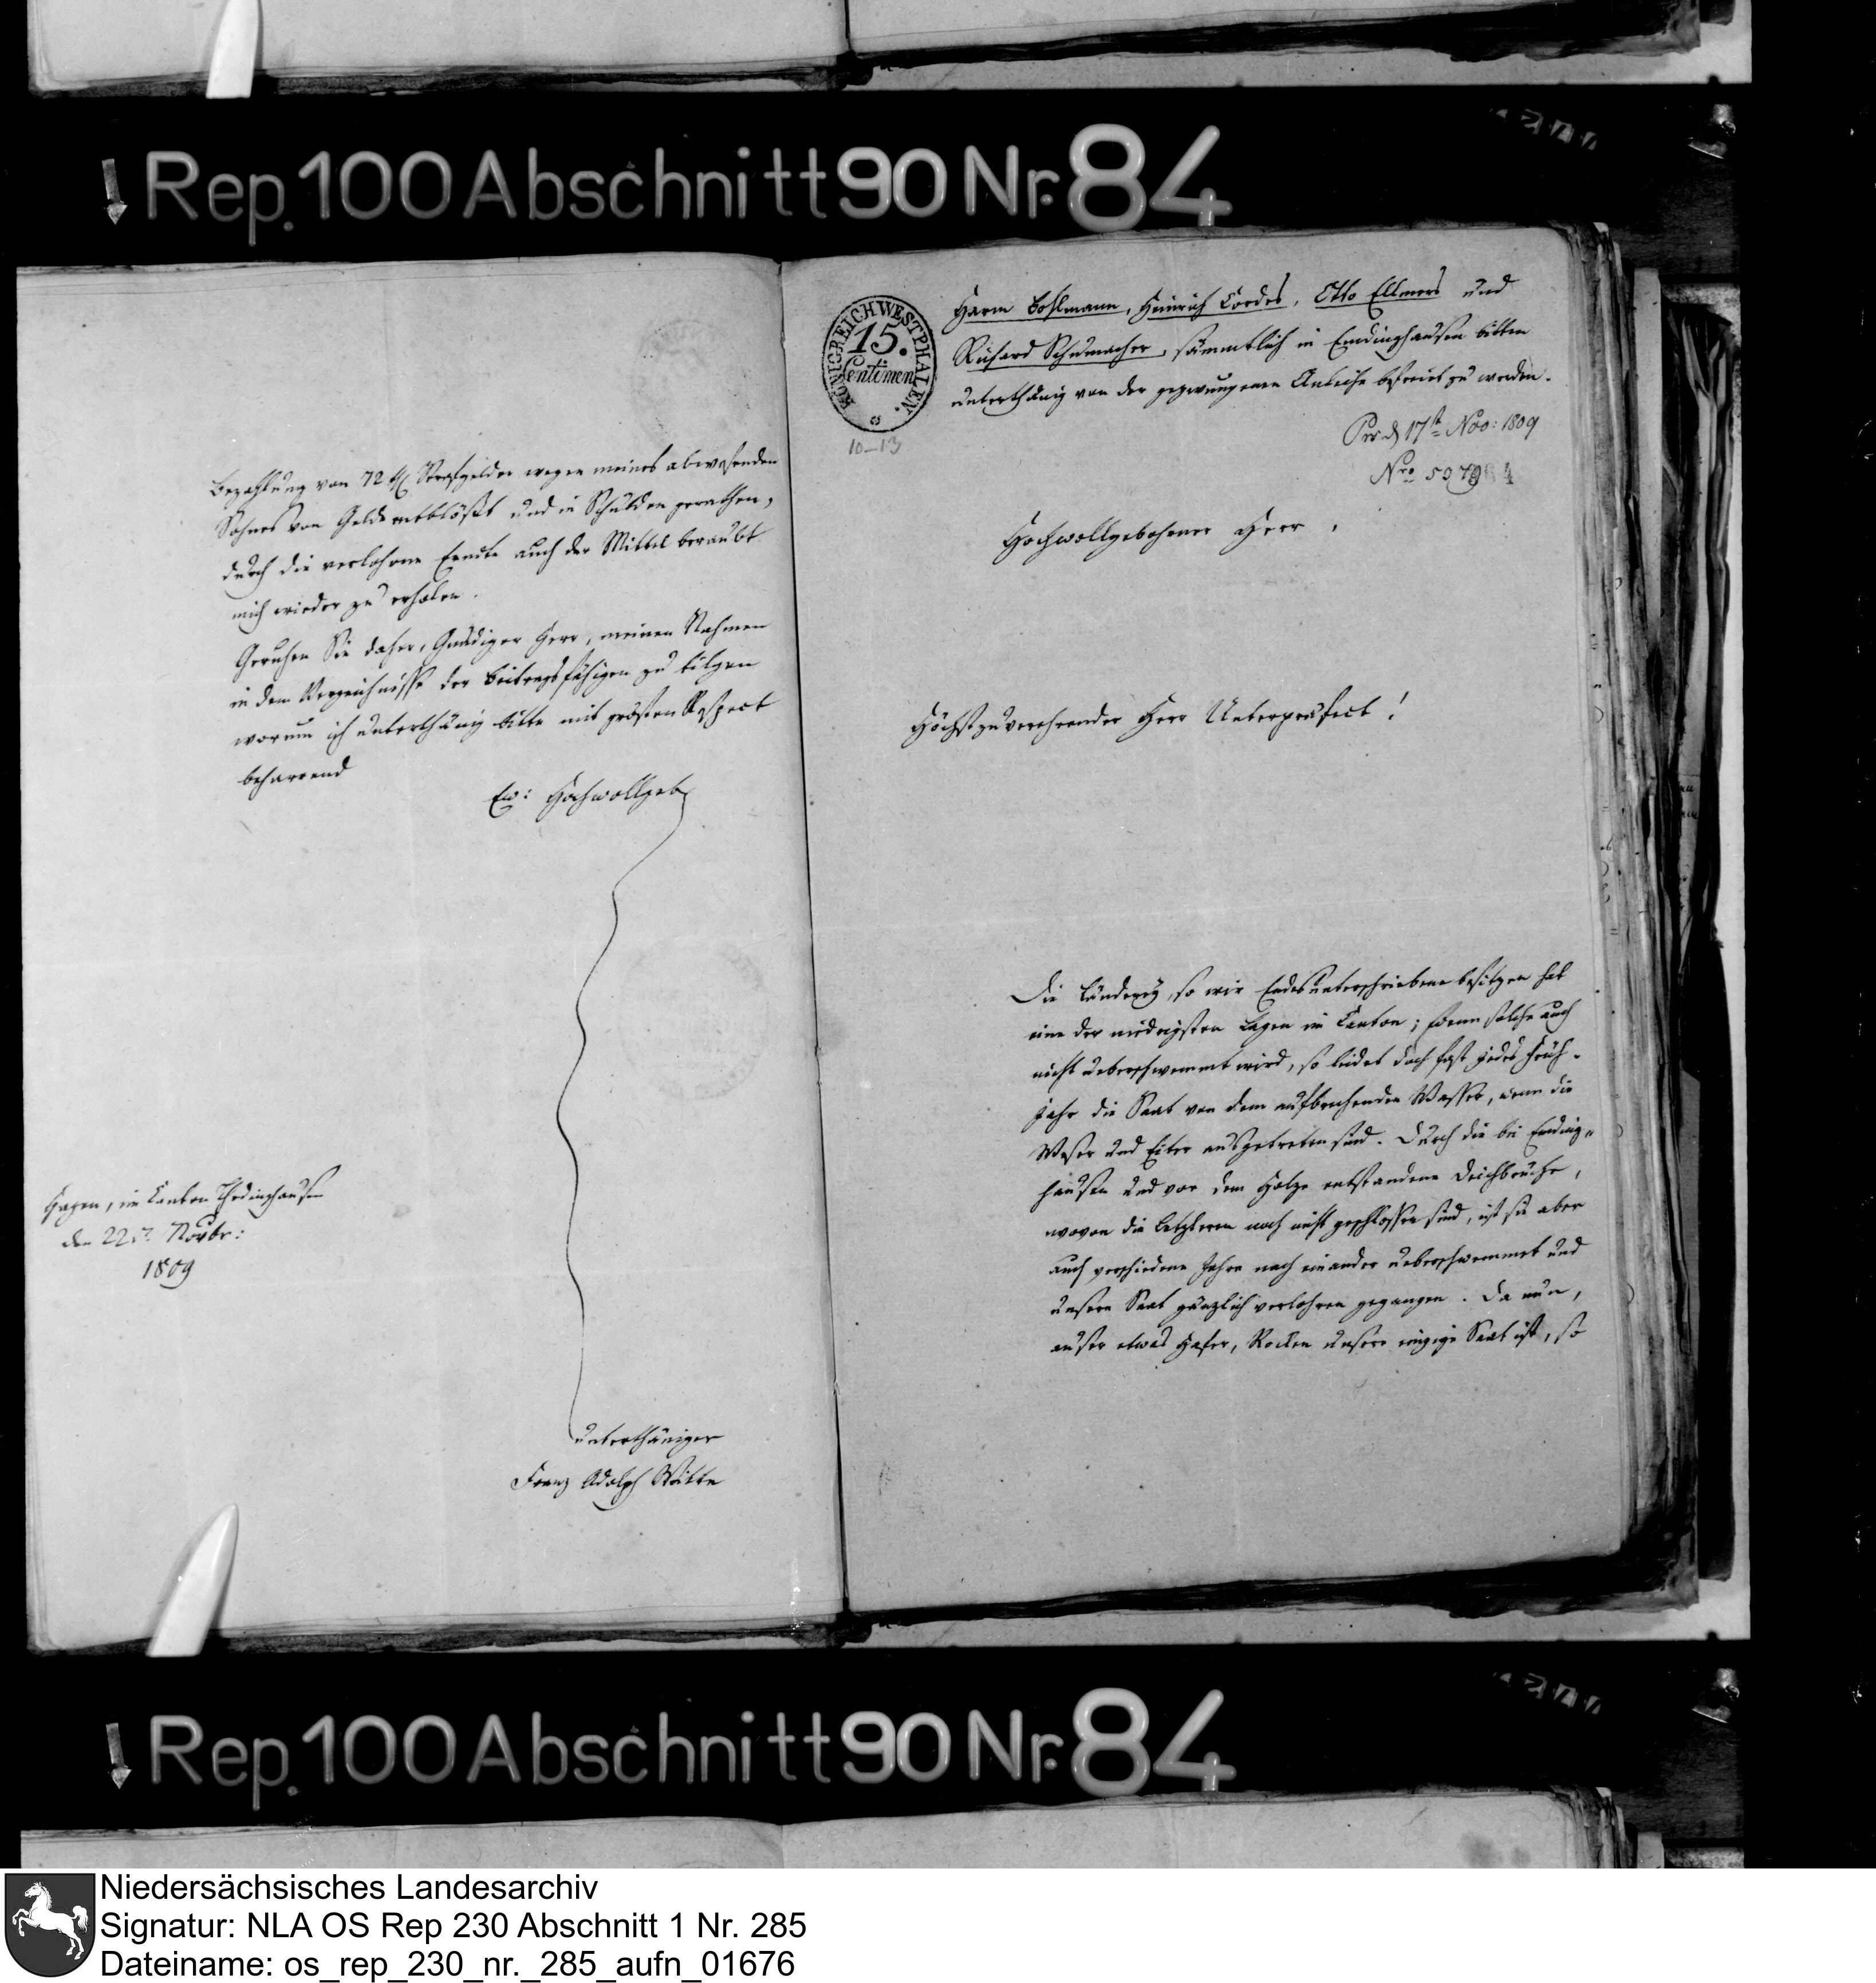 Rep. 100 Abschnitt 90 Nr. 84
Bezahlung von 72 rt Strafgelder wegen meines abwesenden
Sohnes von Gelde entblößt und in Schulden gerathen,
durch die verlohrne Erndte auch der Mittel beraubt
mich wieder zu erholen.
Geruhen Sie daher, Gnädiger Herr, meinen Nahmen
in dem Verzeichnisse der Beitragsfähigen zu tilgen
worum ich unterthänig bitte mit grösten Respect
beharrend
Ew: Hochwollgeb
Hagen, im Canton Thedinghausen
den 22t. Novbr:
1809
unterthäniger
Franz Adolph Witte
KÖNIGREICH WESTPHALEN.
15.
Centimen
10-13
Harm Bohlmann, Heinrich Cordes, Otto Ellmers und
Richard Schumacher, sämmtlich in Emdinghausen bitten
unterthänig von der gezwungenen Anleihe befreiet zu werden.
Pr: d 17t Nov: 1809
Nro 5979
Hochwollgebohrner Herr,
Höchstzuverehrender Herr Unterpräfect!
Die Länderey, so wir Endesunterschriebene besitzen hat
eine der niedrigsten Lagen im Canton; wenn solche auch
nicht ueberschwemmt wird, so leidet doch fast jedes Früh-
jahr die Saat von dem aufbrechenden Wasser, wenn die
Weser und Eiter ausgetreten sind. Durch die bei Emding-
hausen und vor dem Holze entstandene Deichbrüche,
wovon die letzteren noch nicht geschlossen sind, ist sie aber
auch verschiedene Jahre nach einander ueberschwemmet und
unsere Saat gänzlich verlohren gegangen. Da nun,
auser etwas Hafer, Rocken unsere einzige Saat ist, so
Rep. 100 Abschnitt 90 Nr. 84
Niedersächsisches Landesarchiv
Signatur: NLA OS Rep 230 Abschnitt 1 Nr. 285
Dateiname: os_rep_230_nr._285_aufn_01676